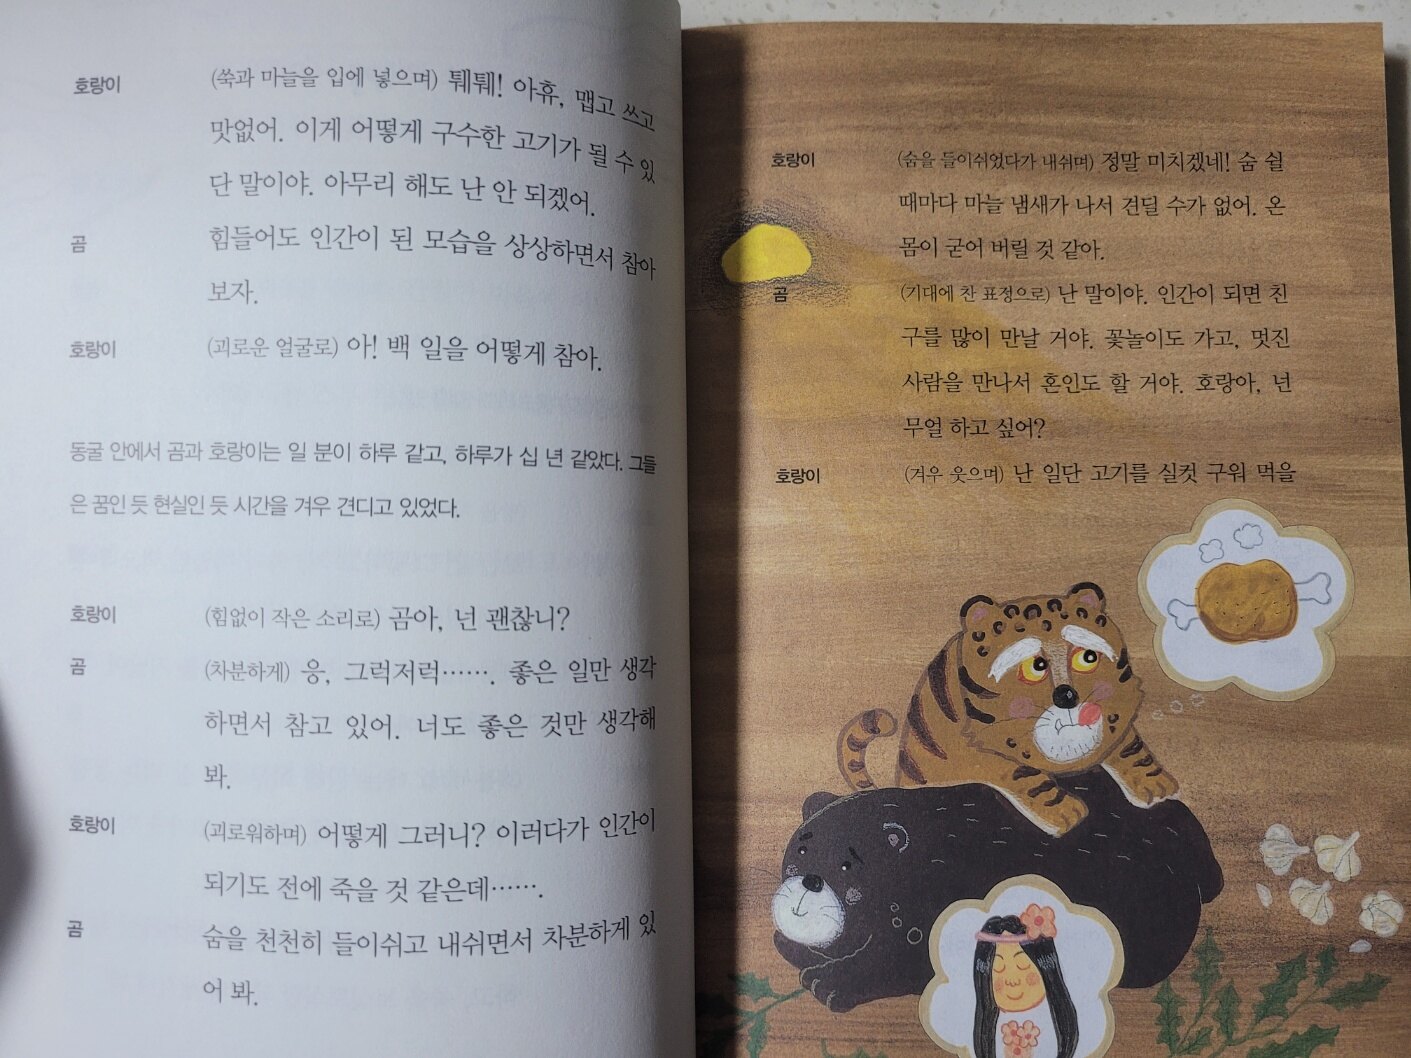 호랑이 (쑥과 마늘을 입에 넣으며) 퉤퉤! 아휴, 맵고 쓰고
맛없어. 이게 어떻게 구수한 고기가 될 수 있
단 말이야. 아무리 해도 난 안 되겠어.
곰 힘들어도 인간이 된 모습을 상상하면서 참아
보자.
호랑이 (괴로운 얼굴로) 아! 백 일을 어떻게 참아.
동굴 안에서 곰과 호랑이는 일 분이 하루 같고, 하루가 십 년 같았다. 그들
은 꿈인 듯 현실인 듯 시간을 겨우 견디고 있었다.
호랑이 (힘없이 작은 소리로) 곰아, 넌 괜찮니?
곰 (차분하게) 응, 그럭저럭……. 좋은 일만 생각
하면서 참고 있어. 너도 좋은 것만 생각해
봐.
호랑이 (괴로워하며) 어떻게 그러니? 이러다가 인간이
되기도 전에 죽을 것 같은데…….
곰 숨을 천천히 들이쉬고 내쉬면서 차분하게 있
어 봐.
호랑이 (숨을 들이쉬었다가 내쉬며) 정말 미치겠네! 숨 쉴
때마다 마늘 냄새가 나서 견딜 수가 없어. 온
몸이 굳어 버릴 것 같아.
곰 (기대에 찬 표정으로) 난 말이야. 인간이 되면 친
구를 많이 만날 거야. 꽃놀이도 가고, 멋진
사람을 만나서 혼인도 할 거야. 호랑아, 넌
무얼 하고 싶어?
호랑이 (겨우 웃으며) 난 일단 고기를 실컷 구워 먹을